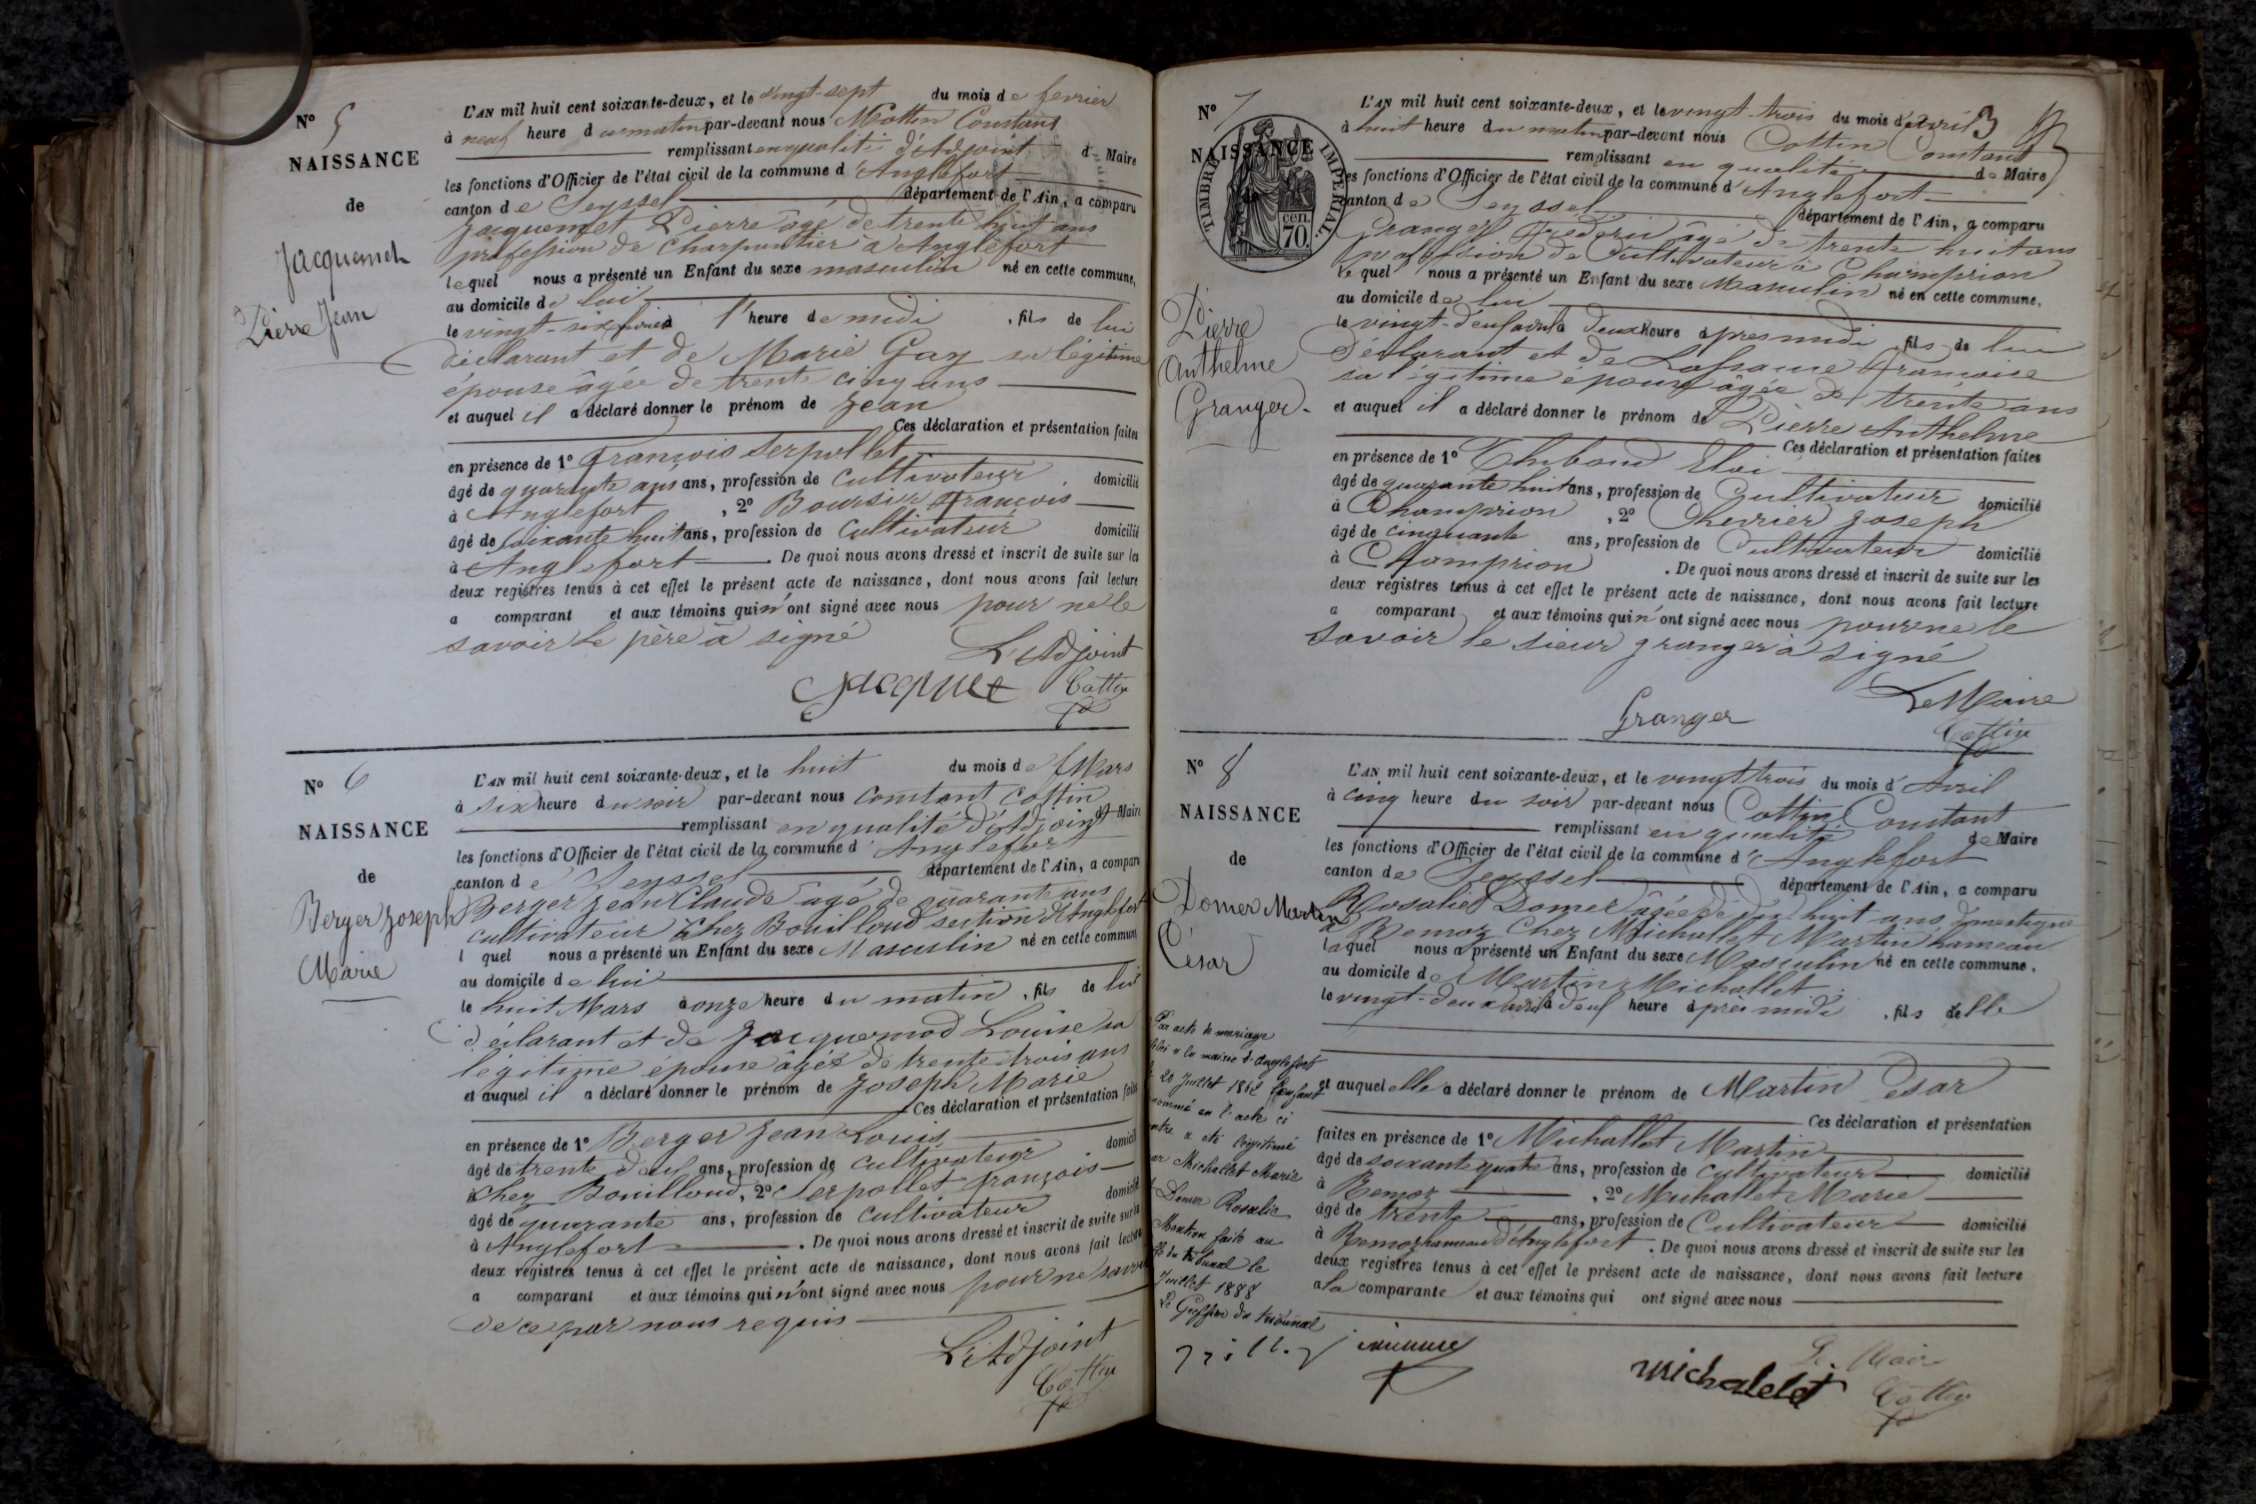 N° 5
NAISSANCE
de
Jacquemet
Pierre Jean
L'AN mil huit cent soixante-deux, et le vingt-sept du mois de fevrier
à neuf heure du matin par-devant nous Cottin Constant
remplissant en qualité d'Adjoint de Maire
les fonctions d'Officier de l'état civil de la commune d'Anglefort
canton de Seyssel département de l'Ain, a comparu
Jacquemet Pierre âgé de trente huit ans
profession de charpentier à Anglefort
lequel nous a présenté un Enfant du sexe masculin né en cette commune,
au domicile de lui
le vingt-six fevrier à l'heure de midi, fils de lui
déclarant et de Marie Gay sa légitime
épouse âgée de trente cinq ans
et auquel il a déclaré donner le prénom de Jean
Ces déclaration et présentation faites
en présence de 1° François Serpollet
âgé de quarante ans ans, profession de cultivateur domicilié
à Anglefort, 2° Boursier François
âgé de soixante huit ans, profession de cultivateur domicilié
à Anglefort. De quoi nous avons dressé et inscrit de suite sur les
deux registres tenus à cet effet le présent acte de naissance, dont nous avons fait lecture
a comparant et aux témoins qui n'ont signé avec nous pour ne le
savoir le père à signé
L'Adjoint
Jacquet Cottin
N° 6
NAISSANCE
de
Berger Joseph
Marie
L'AN mil huit cent soixante-deux, et le huit du mois de Mars
à six heure du soir par-devant nous Constant Cottin
remplissant en qualité d'Adjoint de Maire
les fonctions d'Officier de l'état civil de la commune d'Anglefort
canton de Seyssel département de l'Ain, a comparu
Berger Jean Claude âgé de quarante ans
cultivateur Chez Bouilloud section d'Anglefort
l quel nous a présenté un Enfant du sexe Masculin né en cette commune
au domicile de lui
le huit Mars à onze heure du matin, fils de lui
déclarant et de Jacquemod Louise sa
légitime épouse âgée de trente trois ans
et auquel il a déclaré donner le prénom de Joseph Marie
Ces déclaration et présentation faites
en présence de 1° Berger Jean Louis
âgé de trente deux ans, profession de cultivateur domicilié
à chez Bouilloud, 2° Serpollet françois
âgé de quarante ans, profession de cultivateur domicilié
à Anglefort. De quoi nous avons dressé et inscrit de suite sur les
deux registres tenus à cet effet le présent acte de naissance, dont nous avons fait lecture
a comparant et aux témoins qui n'ont signé avec nous pour ne savoir
de ce par nous requis
L'Adjoint
Cottin
N° 7
NAISSANCE
TIMBRE IMPERIAL
cen.
70.
Pierre
Anthelme
Granger
L'AN mil huit cent soixante-deux, et le vingt-trois du mois d'avril
à huit heure du matin par-devant nous Cottin Constant
remplissant en qualité de Maire
les fonctions d'Officier de l'état civil de la commune d'Anglefort
canton de Seyssel département de l'Ain, a comparu
Granger Frédéric âgé de trente huit ans
profession de Cultivateur à Champrion
le quel nous a présenté un Enfant du sexe Masculin né en cette commune,
au domicile de lui
le vingt-deux avril à deux heure après midi, fils de lui
déclarant et de Françoise
sa légitime épouse âgée de trente ans
et auquel il a déclaré donner le prénom de Pierre Anthelme
Ces déclaration et présentation faites
en présence de 1° Thiboud Eloi
âgé de quarante huit ans, profession de Cultivateur domicilié
à Champrion, 2° Chevrier Joseph
âgé de cinquante ans, profession de Cultivateur domicilié
à Champrion. De quoi nous avons dressé et inscrit de suite sur les
deux registres tenus à cet effet le présent acte de naissance, dont nous avons fait lecture
a comparant et aux témoins qui n'ont signé avec nous pour ne le
savoir le sieur granger à signé
Le Maire
Granger Cottin
N° 8
NAISSANCE
de
Domer Martin
César
L'AN mil huit cent soixante-deux, et le vingt trois du mois d'Avril
à cinq heure du soir par-devant nous Cottin Constant
remplissant en qualité de Maire
les fonctions d'Officier de l'état civil de la commune d'Anglefort
canton de Seyssel département de l'Ain, a comparu
Rosalie Domer âgée de dix huit ans, domestique
à Remoz chez Michallet Martin hameau
laquel nous a présenté un Enfant du sexe Masculin né en cette commune,
au domicile de Martin Michallet
le vingt-deux avril à deux heure après midi, fils delle
et auquel elle a déclaré donner le prénom de Martin César
Ces déclaration et présentation
faites en présence de 1° Michallet Martin
âgé de soixante quatre ans, profession de cultivateur domicilié
à Remoz, 2° Michallet Marie
âgé de trente ans, profession de Cultivateur domicilié
à Remoz hameau d'Anglefort. De quoi nous avons dressé et inscrit de suite sur les
deux registres tenus à cet effet le présent acte de naissance, dont nous avons fait lecture
a la comparante et aux témoins qui ont signé avec nous
Le Maire
michalelet Cottin
Par acte de mariage
à la mairie d'Anglefort
20 Juillet 1862 l'enfant
nommé en l'acte ci
contre a été légitimé
par Michallet Marie
Domer Rosalie
Mention faite au
du tribunal le
Juillet 1888
Le Greffier du tribunal